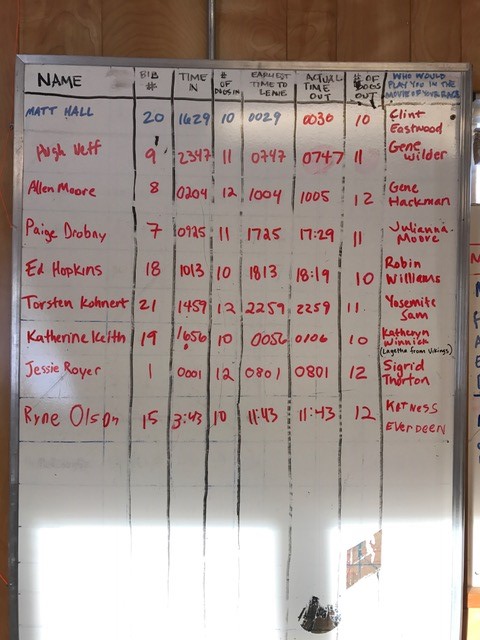 NAME BIB # TIME IN # OF DOGS IN EARLIEST TIME TO LEAVE ACTUAL TIME OUT # OF DOGS OUT WHO WOULD PLAY YOU IN THE MOVIE OF YOUR RACE
MATT HALL 20 1629 10 0029 0030 10 Clint Eastwood
Hugh Neff 9 2347 11 0747 0747 11 Gene Wilder
Allen Moore 8 0204 12 1004 1005 12 Gene Hackman
Paige Drobny 7 0925 11 1725 17:29 11 Julianna Moore
Ed Hopkins 18 1013 10 1813 18:19 10 Robin Williams
Torsten Kohnert 21 1459 12 2259 2259 11 Yosemite Sam
Katherine Keith 19 1656 10 0056 0106 10 Katheryn Winnick (Lagetha from Vikings)
Jessie Royer 1 0001 12 0801 0801 12 Sigrid Thorton
Ryne Olson 15 3:43 10 11:43 11:43 12 KATNESS EVERDEEN